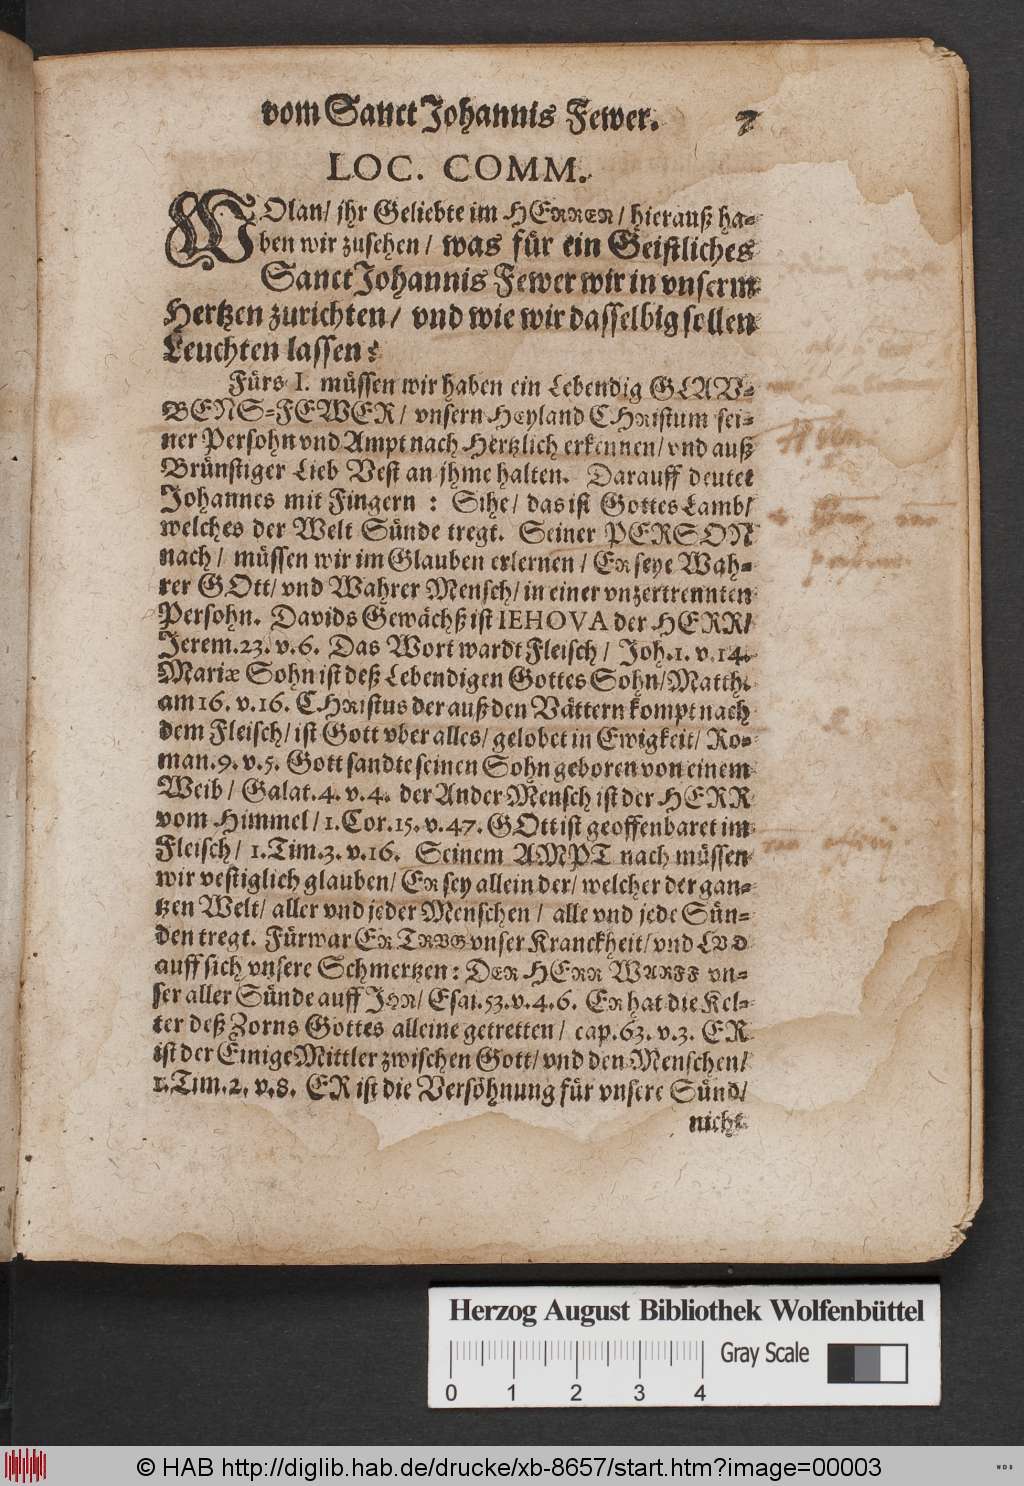 vom Sanct Johannis Fewer. 7
LOC. COMM.
WOlan/ jhr Geliebte im HERREN/ hierauß ha-
ben wir zusehen/ was für ein Geistliches
Sanct Johannis Fewer wir in vnserm
Hertzen zurichten/ vnd wie wir dasselbig sollen
Leuchten lassen?
Fürs I. müssen wir haben ein Lebendig GLAV-
BENS-FEWER/ vnsern Heyland CHristum sei-
ner Persohn vnd Ampt nach Hertzlich erkennen/ vnd auß
Brünstiger Lieb Vest an jhme halten. Darauff deutet
Johannes mit Fingern : Sihe/ das ist Gottes Lamb/
welches der Welt Sünde tregt. Seiner PERSON
nach/ müssen wir im Glauben erlernen/ Er seye Wah-
rer GOtt/ vnd Wahrer Mensch/ in einer vnzertrennten
Persohn. Davids Gewächß ist IEHOVA der HERR/
Jerem.23. v.6. Das Wort wardt Fleisch/ Joh.1. v.14.
Mariæ Sohn ist deß Lebendigen Gottes Sohn/ Matth.
am 16. v.16. CHristus der auß den Vättern kompt nach
dem Fleisch/ ist Gott vber alles/ gelobet in Ewigkeit/ Ro-
man.9. v.5. Gott sandte seinen Sohn geboren von einem
Weib/ Galat.4. v.4. der Ander Mensch ist der HERR
vom Himmel/ 1.Cor.15. v.47. GOtt ist geoffenbaret im
Fleisch/ 1.Tim.3. v.16. Seinem AMPT nach müssen
wir vestiglich glauben/ Er sey allein der/ welcher der gan-
tzen Welt/ aller vnd jeder Menschen/ alle vnd jede Sün-
den tregt. Fürwar ER TRVG vnser Kranckheit/ vnd LVD
auff sich vnsere Schmertzen: DER HERR WARFF vn-
ser aller Sünde auff JHN/ Esai.53. v.4.6. ER hat die Kel-
ter deß Zorns Gottes alleine getretten/ cap.63. v.3. ER
ist der Einige Mittler zwischen Gott/ vnd den Menschen/
1.Tim.2. v.8. ER ist die Versöhnung für vnsere Sünd/
nicht
Herzog August Bibliothek Wolfenbüttel
0 1 2 3 4 Gray Scale
© HAB http://diglib.hab.de/drucke/xb-8657/start.htm?image=00003